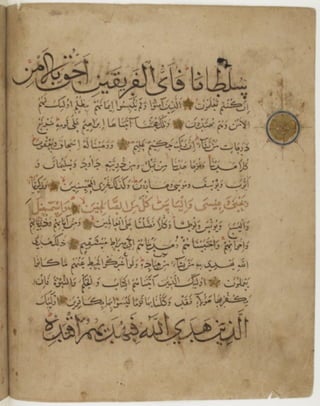 سلطانا فأي الفريقين أحق بالأمن
إن كنتم تعلمون الذين آمنوا ولم يلبسوا إيمانهم بظلم أولئك لهم
الأمن وهم مهتدون وتلك حجتنا آتيناها إبراهيم على قومه نرفع
درجات من نشاء إن ربك حكيم عليم ووهبنا له إسحاق ويعقوب
كلا هدينا ونوحا هدينا من قبل ومن ذريته داود وسليمان و
أيوب ويوسف وموسى وهارون وكذلك نجزي المحسنين وزكريا
ويحيى وعيسى وإلياس كل من الصالحين وإسماعيل
واليسع ويونس ولوطا وكلا فضلنا على العالمين ومن آبائهم وذرياتهم
وإخوانهم واجتبيناهم وهديناهم إلى صراط مستقيم ذلك هدى
الله يهدي به من يشاء من عباده ولو أشركوا لحبط عنهم ما كانوا
يعملون أولئك الذين آتيناهم الكتاب والحكم والنبوة فإن
يكفر بها هؤلاء فقد وكلنا بها قوما ليسوا بها بكافرين أولئك
الذين هدى الله فبهداهم اقتده